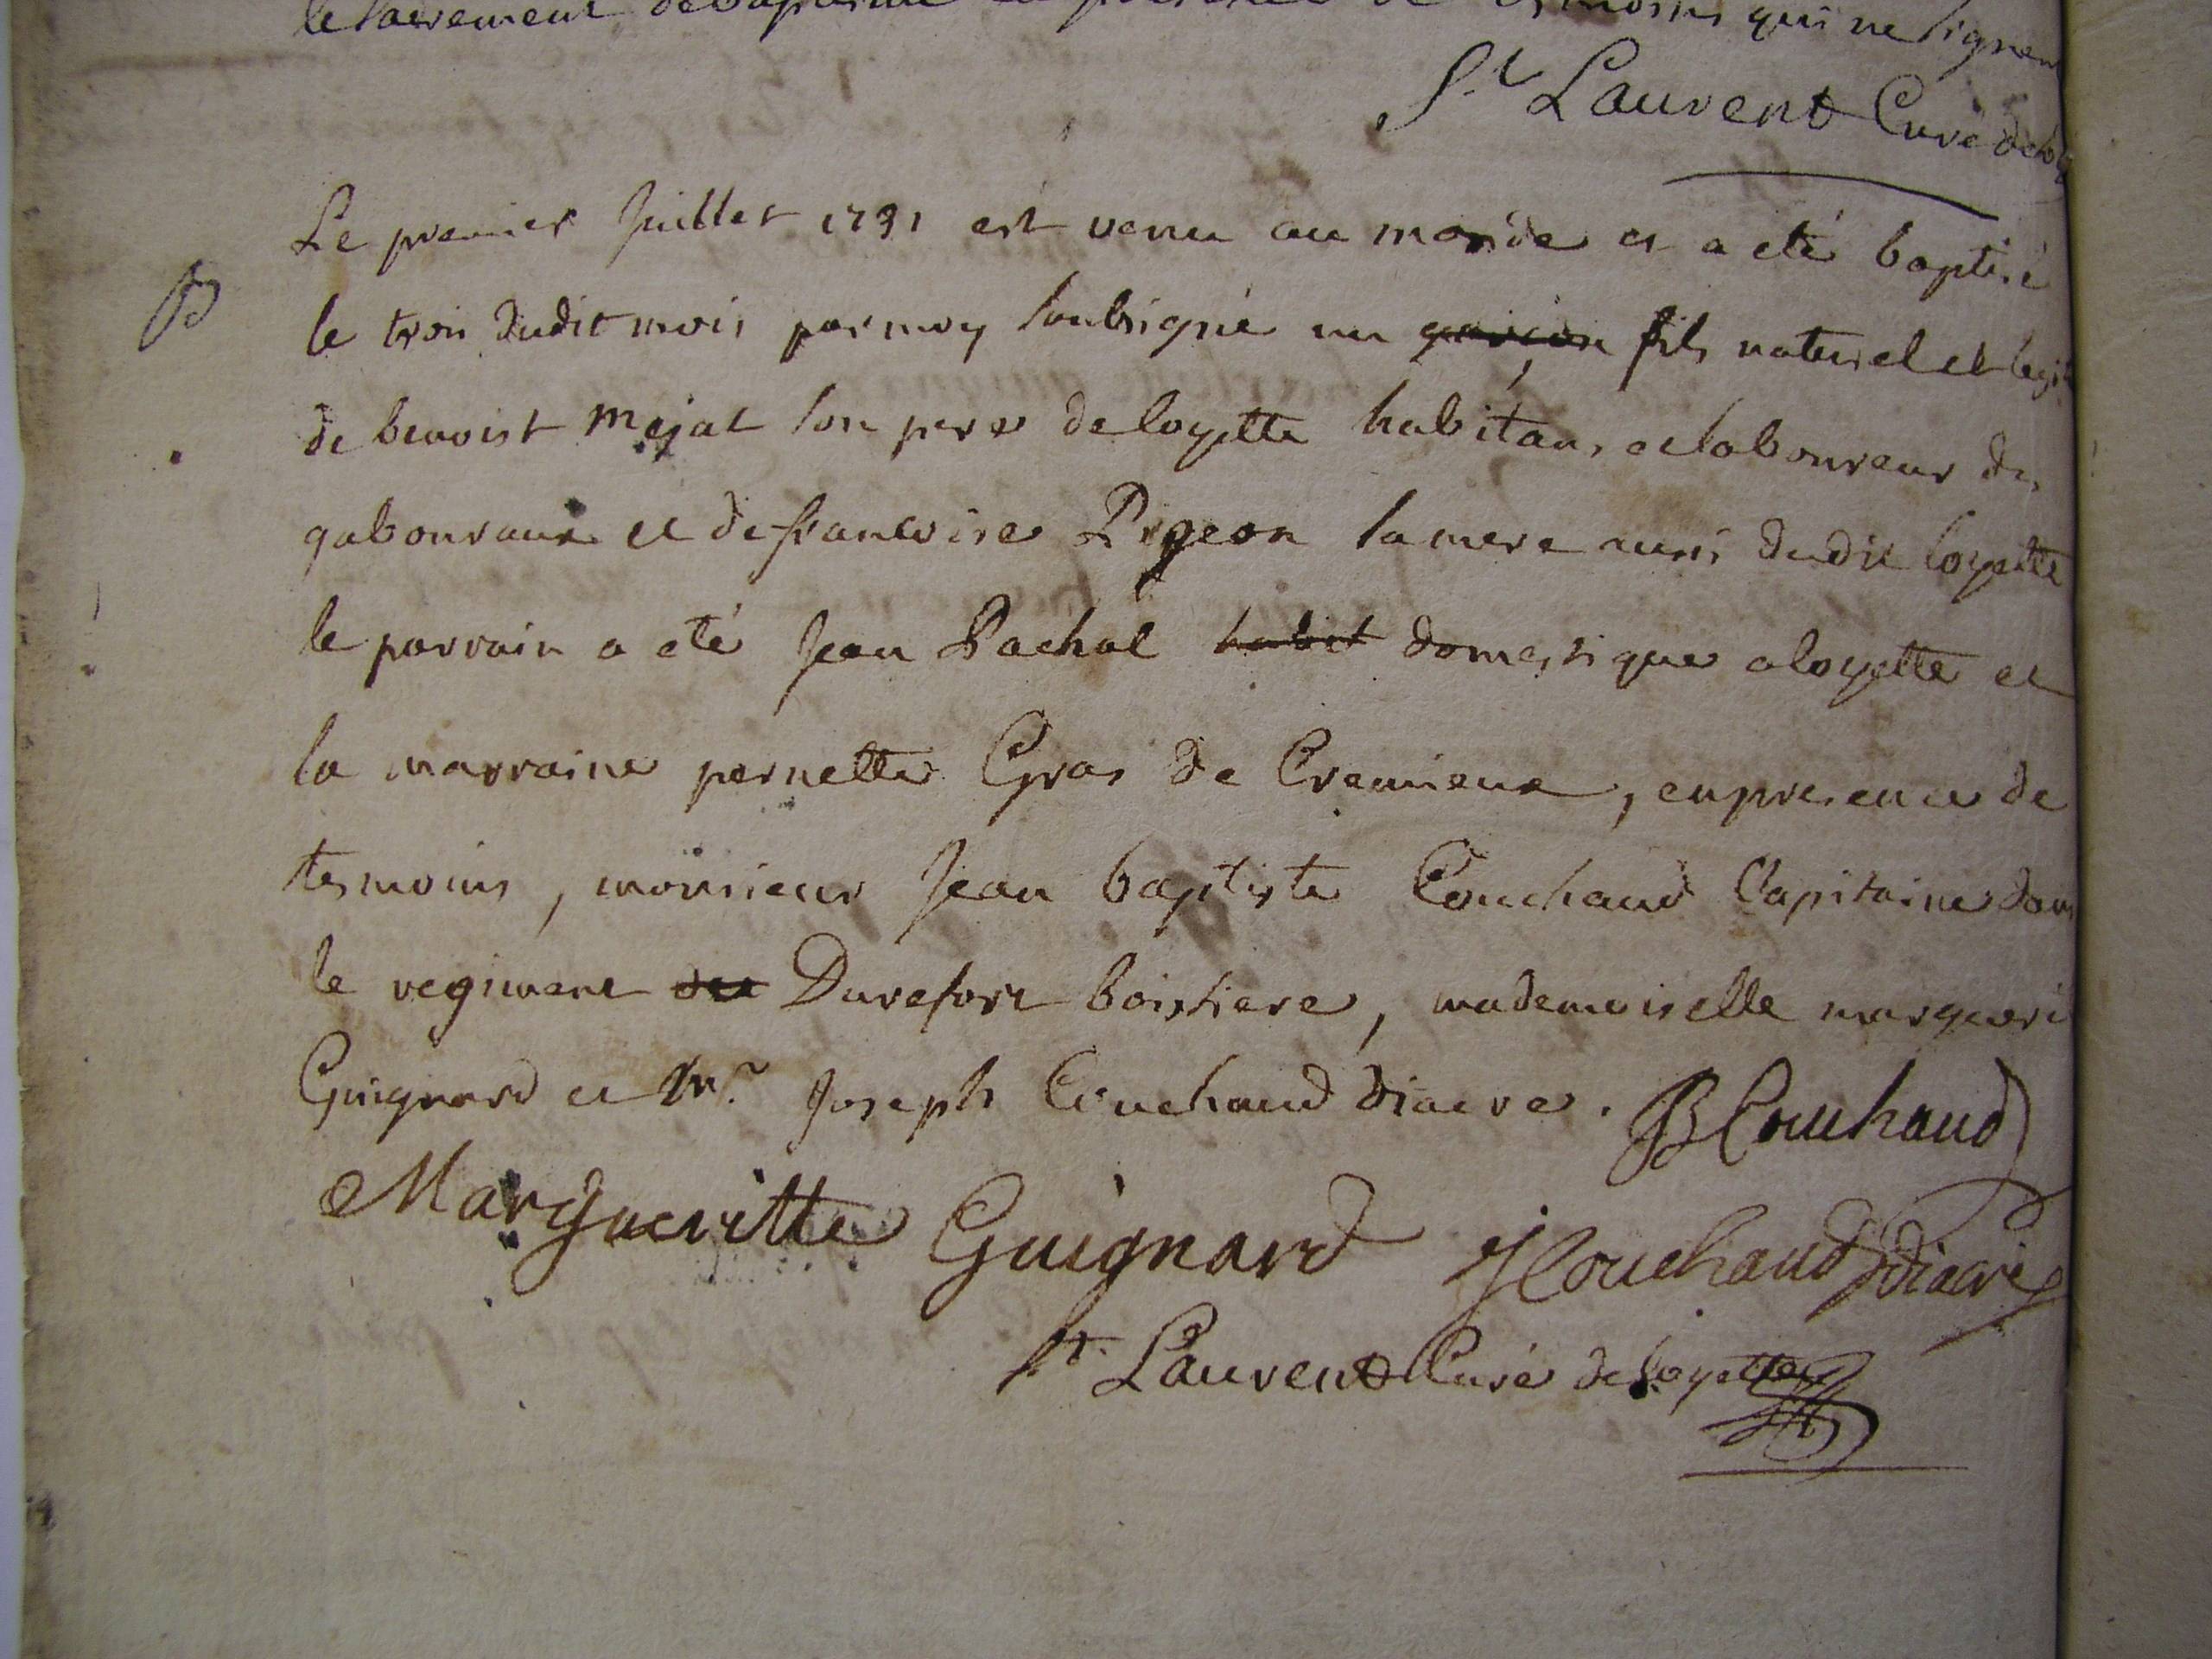 le sacrement de baptisme en presence de tesmoins qui ne signen
St Laurent Curé de loy
Le premier Juillet 1731 est venu au monde et a eté baptisé
B
le trois dudit mois par moy soubsigné un garçon fils naturel et legit
de benoist Mejat son pere de loyette habitans et laboureur des
gabouraux et de francoise Pigeon sa mere aussi dudit loyette
le parrain a eté Jean Pachal habit domestique a loyette et
la marraine pernette Gras de Cremieux, en presence de
tesmoins, monsieur Jean baptiste Couchaud Capitaine dans
le regiment de Durefort boissiere, mademoiselle margueri
Guignard et Mr. Joseph Couchaud diacre. JB Couchaud
Margueritte Guignard J Couchaud diacre
St. Laurent Curé de loyette